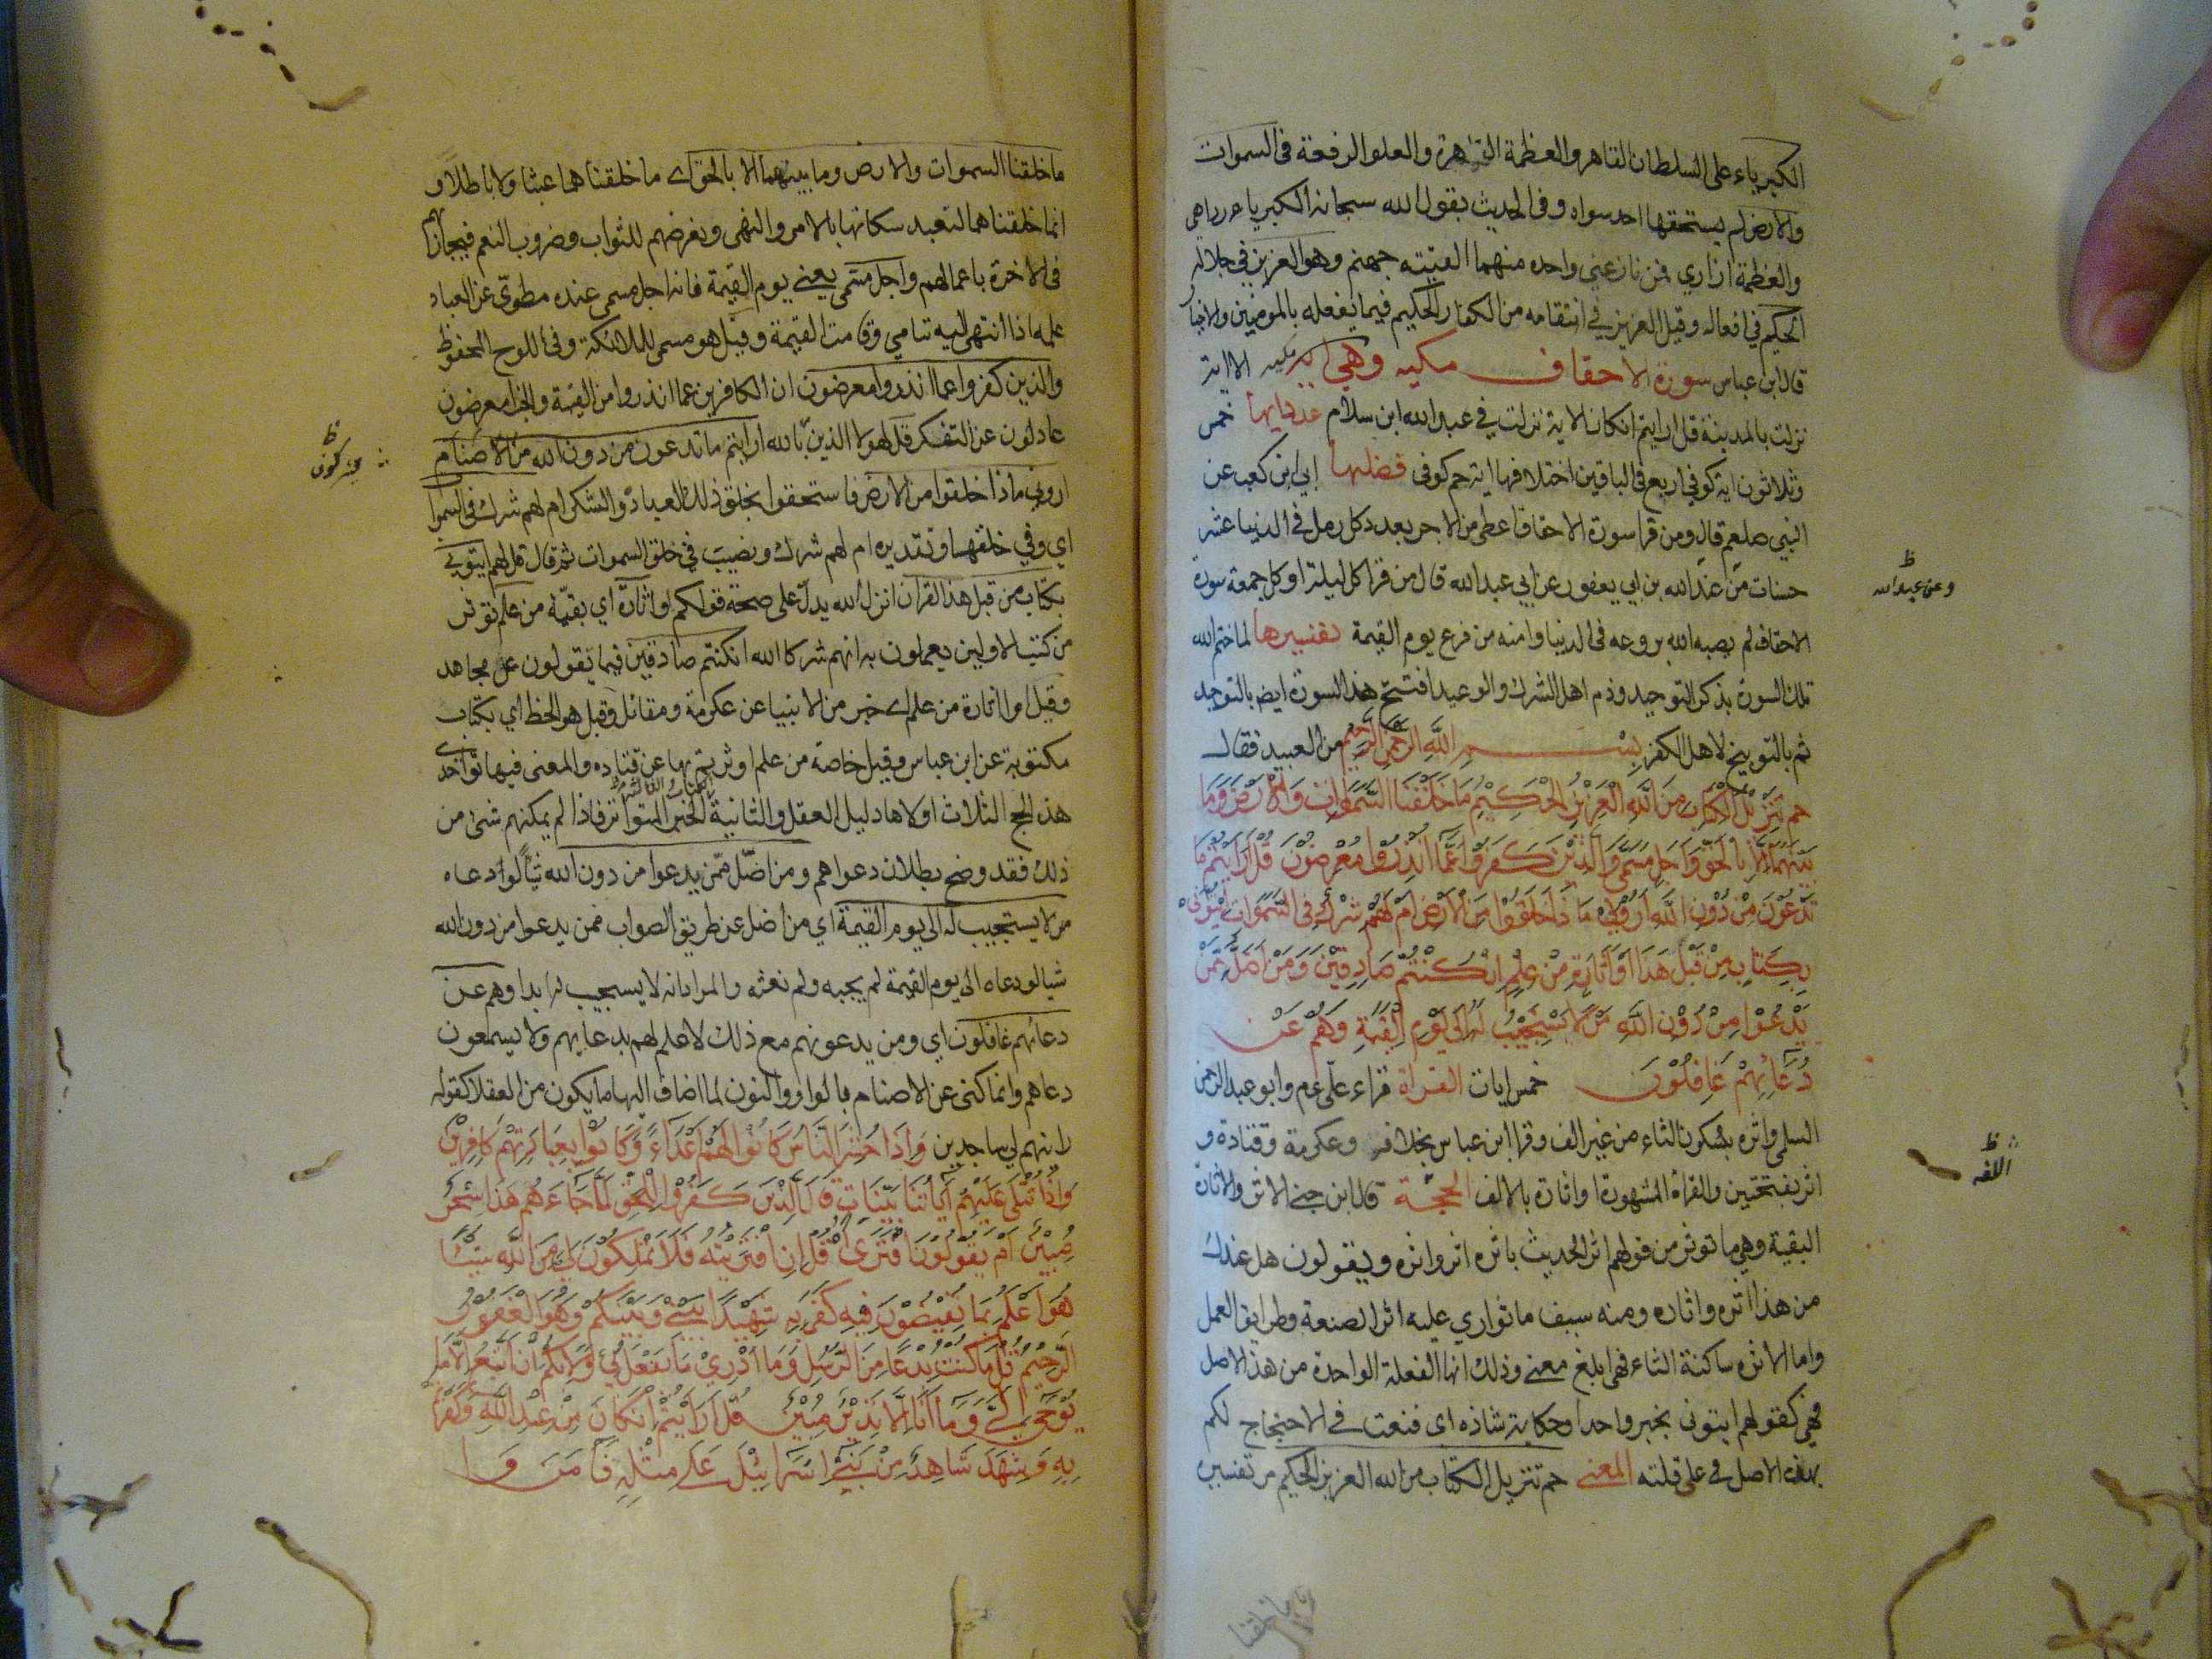 الكبرياء على السلطان القاهر والعظمة القاهرة والعلو الرفعة فى السموات
والارض لم يستحقها احد سواه وفى الحديث يقول الله سبحانه الكبرياء ردائى
والعظمة ازاري فمن نازعنى واحده منهما القيته جهنم وهو العزيز فى جلاله
الحكيم فى افعاله وقيل العزيز فى انتقامه من الكفار الحكيم فيما يفعله بالمومنين والاخيار
سورة الاحقاف مكيه وهى مكيه قال ابن عباس الا اية
نزلت بالمدينة قل ارايتم ان كان الاية نزلت في عبد الله ابن سلام عدد ايها خمس
وثلاثون اية كوفي اربع فى الباقين اختلافها اية حم كوفى فضلها ابي ابن كعب عن
النبى صلعم قال ومن قرا سورة الاحقاف اعطى من الاجر بعدد كل رمل فى الدنيا عشر
حسنات من عند الله بن ابي يعفور عن ابي عبد الله قال من قرا كل ليلة او كل جمعة سورة
وعن عبد الله
الاحقاف لم يصبه الله بروعه فى الدنيا وامنه من فزع يوم القيمة تفسيرها لما ختم الله
تلك السورة بذكر التوحيد وذم اهل الشرك والوعيد افتتح هذه السورة ايضا بالتوحيد
ثم بالتوبيخ لاهل الكفر بسم الله الرحمن الرحيم من العبيد فقال
حم تنزيل الكتاب من الله العزيز الحكيم ما خلقنا السموات والارض وما
بينهما الا بالحق واجل مسمى والذين كفروا عما انذروا معرضون قل ارايتم ما
تدعون من دون الله اروني ما ذا خلقوا من الارض ام لهم شرك فى السموات ايتونى
بكتاب من قبل هذا او اثارة من علم ان كنتم صادقين ومن اضل ممن
يدعوا من دون الله من لا يستجيب له الى يوم القيمة وهم عن
دعائهم غافلون خمس ايات القراة قراء على عم وابو عبد الرحمن
السلمى واثرة بسكون الثاء من غير الف وقرا ابن عباس بخلاف وعكرمة وقتادة و
اثرة بفتحتين والقراة المشهورة او اثارة بالالف الحجة قال ابن جنى الاثرة والاثارة
البقية وهى ما توثر من قولهم اثر الحديث ياثره اثرا واثره ويقولون هل عندك
من هذا اثره واثاره ومنه سيف ماثور اي عليه اثر الصنعة وطرايق العمل
واما الاثره ساكنة الثاء فهى ابلغ معنى وذلك انها الفعلة الواحدة من هذا الاصل
فهى كقولهم ايتونى بخبر واحد او حكاية شاذه اى قنعت فى الاحتجاج لكم
بهذا الاصل على قلته المعنى حم تنزيل الكتاب من الله العزيز الحكيم مر تفسيره
ما خلقنا
ما خلقنا السموات والارض وما بينهما الا بالحق اى ما خلقناهما عبثا ولا باطلا و
انما خلقناهما لتعبد سكانها بالامر والنهى ونعرضهم للثواب وضروب النعم فيجازيهم
فى الاخرة باعمالهم واجل مسمى يعنى يوم القيمة فانه اجل مسمى عنده مطوىّ عن العباد
علمه اذا انتهى اليه تناهى وقامت القيمة وقيل هو مسمى للملائكة وفى اللوح المحفوظ
والذين كفروا عما انذروا معرضون ان الكافرين عما انذروا من القيمة والجزا معرضون
عادلون عن التفكر قل لهولا الذين بالله ارايتم ما تدعون من دون الله من الاصنام
اروني ماذا خلقوا من الارض فاستحقوا بخلق ذلك العبادة والشكر ام لهم شرك فى السموات
اي وفي خلقها وتقديره ام لهم شرك ونصيب فى خلق السموات ثم قال قل لهم ايتوني
بكتاب من قبل هذا القران انزل الله يدل على صحة قولكم او اثارة اي بقية من علم توثر
من كتب الاولين يعملون به انهم شركا الله ان كنتم صادقين فيما تقولون عن مجاهد
وقيل او اثارة من علم اى خبر من الانبيا عن عكرمة ومقاتل وقيل هو الخط اي بكتاب
مكتوبة عن ابن عباس وقيل خاصة من علم اوثرتم بها عن قتاده والمعنى فيهاتوا احدى
هذه الحجج الثلاث اولاها دليل العقل والثانية الكتاب والثالثة الخبر المتواتر فاذا لم يمكنهم شئ من
ذلك فقد وضح بطلان دعواهم ومن اضل ممن يدعوا من دون الله شيأ لو دعاه
من لا يستجيب له الى يوم القيمة اي من اضل عن طريق الصواب ممن يدعوا من دون الله
شيا لو دعاه الى يوم القيمة لم يجبه ولم نغثه والمراد انه لا يستجيب له ابدا وهم عن
دعائهم غافلون اي ومن يدعونهم مع ذلك لا علم لهم بدعايهم ولا يسمعون
دعاهم وانما كنى عن الاصنام بالواو والنون لما اضاف اليها ما يكون من العقلا كقوله
رايتهم لي ساجدين واذا حشر الناس كانوا لهم اعداء وكانوا بعبادتهم كافرين
واذا تتلى عليهم اياتنا بينات قال الذين كفروا للحق لما جاءهم هذا سحر
مبين ام يقولون افترى قل ان افتريته فلا تملكون لي من الله شيئا
هو اعلم بما تفيضون فيه كفى به شهيدا بينى وبينكم وهو الغفور
الرحيم قل ما كنت بدعا من الرسل وما ادري ما يفعل بي ولا بكم ان اتبع الا ما
يوحى الي وما انا الا نذير مبين قل ارايتم ان كان من عند الله وكفرتم
به وشهد شاهد من بنى اسرائيل على مثله فامن وا